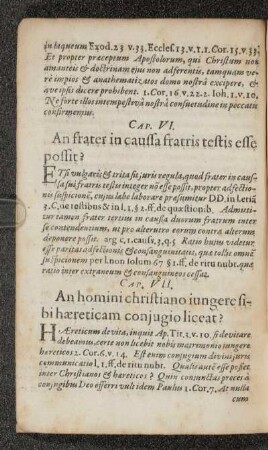 in laqueum Exod. 23 v. 33. Eccles. 13. v. 1. 1. Cor. 15. v. 33.
Et propter præceptum Apostolorum, qui Christum non
amantes & doctrinam ejus non adferentis, tamquam ve-
rè impios & anathematizatos domo nostrâ excipere, &
ave ipsi dicere prohibent. 1. Cor. 16. v. 22. 2. Ioh. 1. v. 10,
Ne forte illos intempestivâ nostrâ consuetudine in peccatis
confirmemus.
CAP. VI.
An frater in caussa fratris testis esse
possit?
ETsi vulgaris & trita sit juris regula, quod frater in caus-
sa sui fratris testis integer nō esse possit, propter adfectio-
nis suspicionē, cujus labe laborare præsumitur DD. in Leti
3. C. de testibus & in l. 3. § 2. ff. de quæstionib. Admitti-
tur tamen frater tertius in caussa duorum fratrum inter
se contendentium, ut pro alterutro eorum contra alterum
deponere possit. arg c. 1. caus. v. 3, q. 5 Ratio hujus videtur
esse paritas adfectionis & consanguinitatis, quæ tollit omnē
suspicionem per l. non solum 67 § 1. ff. de ritu nubt. quæ
ratio inter extraneum & consanguineos cessat.
CAP. VII.
An homini christiano iungere si-
bi hæreticam conjugio liceat?
HÆreticum devita, inquit Ap. Tit. 3. v. 10. si devitare
debeamus, certe non licebit nobis matrimonio jungere
hereticos 2. Cor. 6. v. 14. Est enim conjugium divini juris
communicatio l. 1. ff. de ritu nubt. Qualis autē esse posset
inter Christianos & hæreticos? Quin conjunctas preces à
conjugibus Deo offerri vult idem Paulus 1. Cor. 7. At nulla
cum